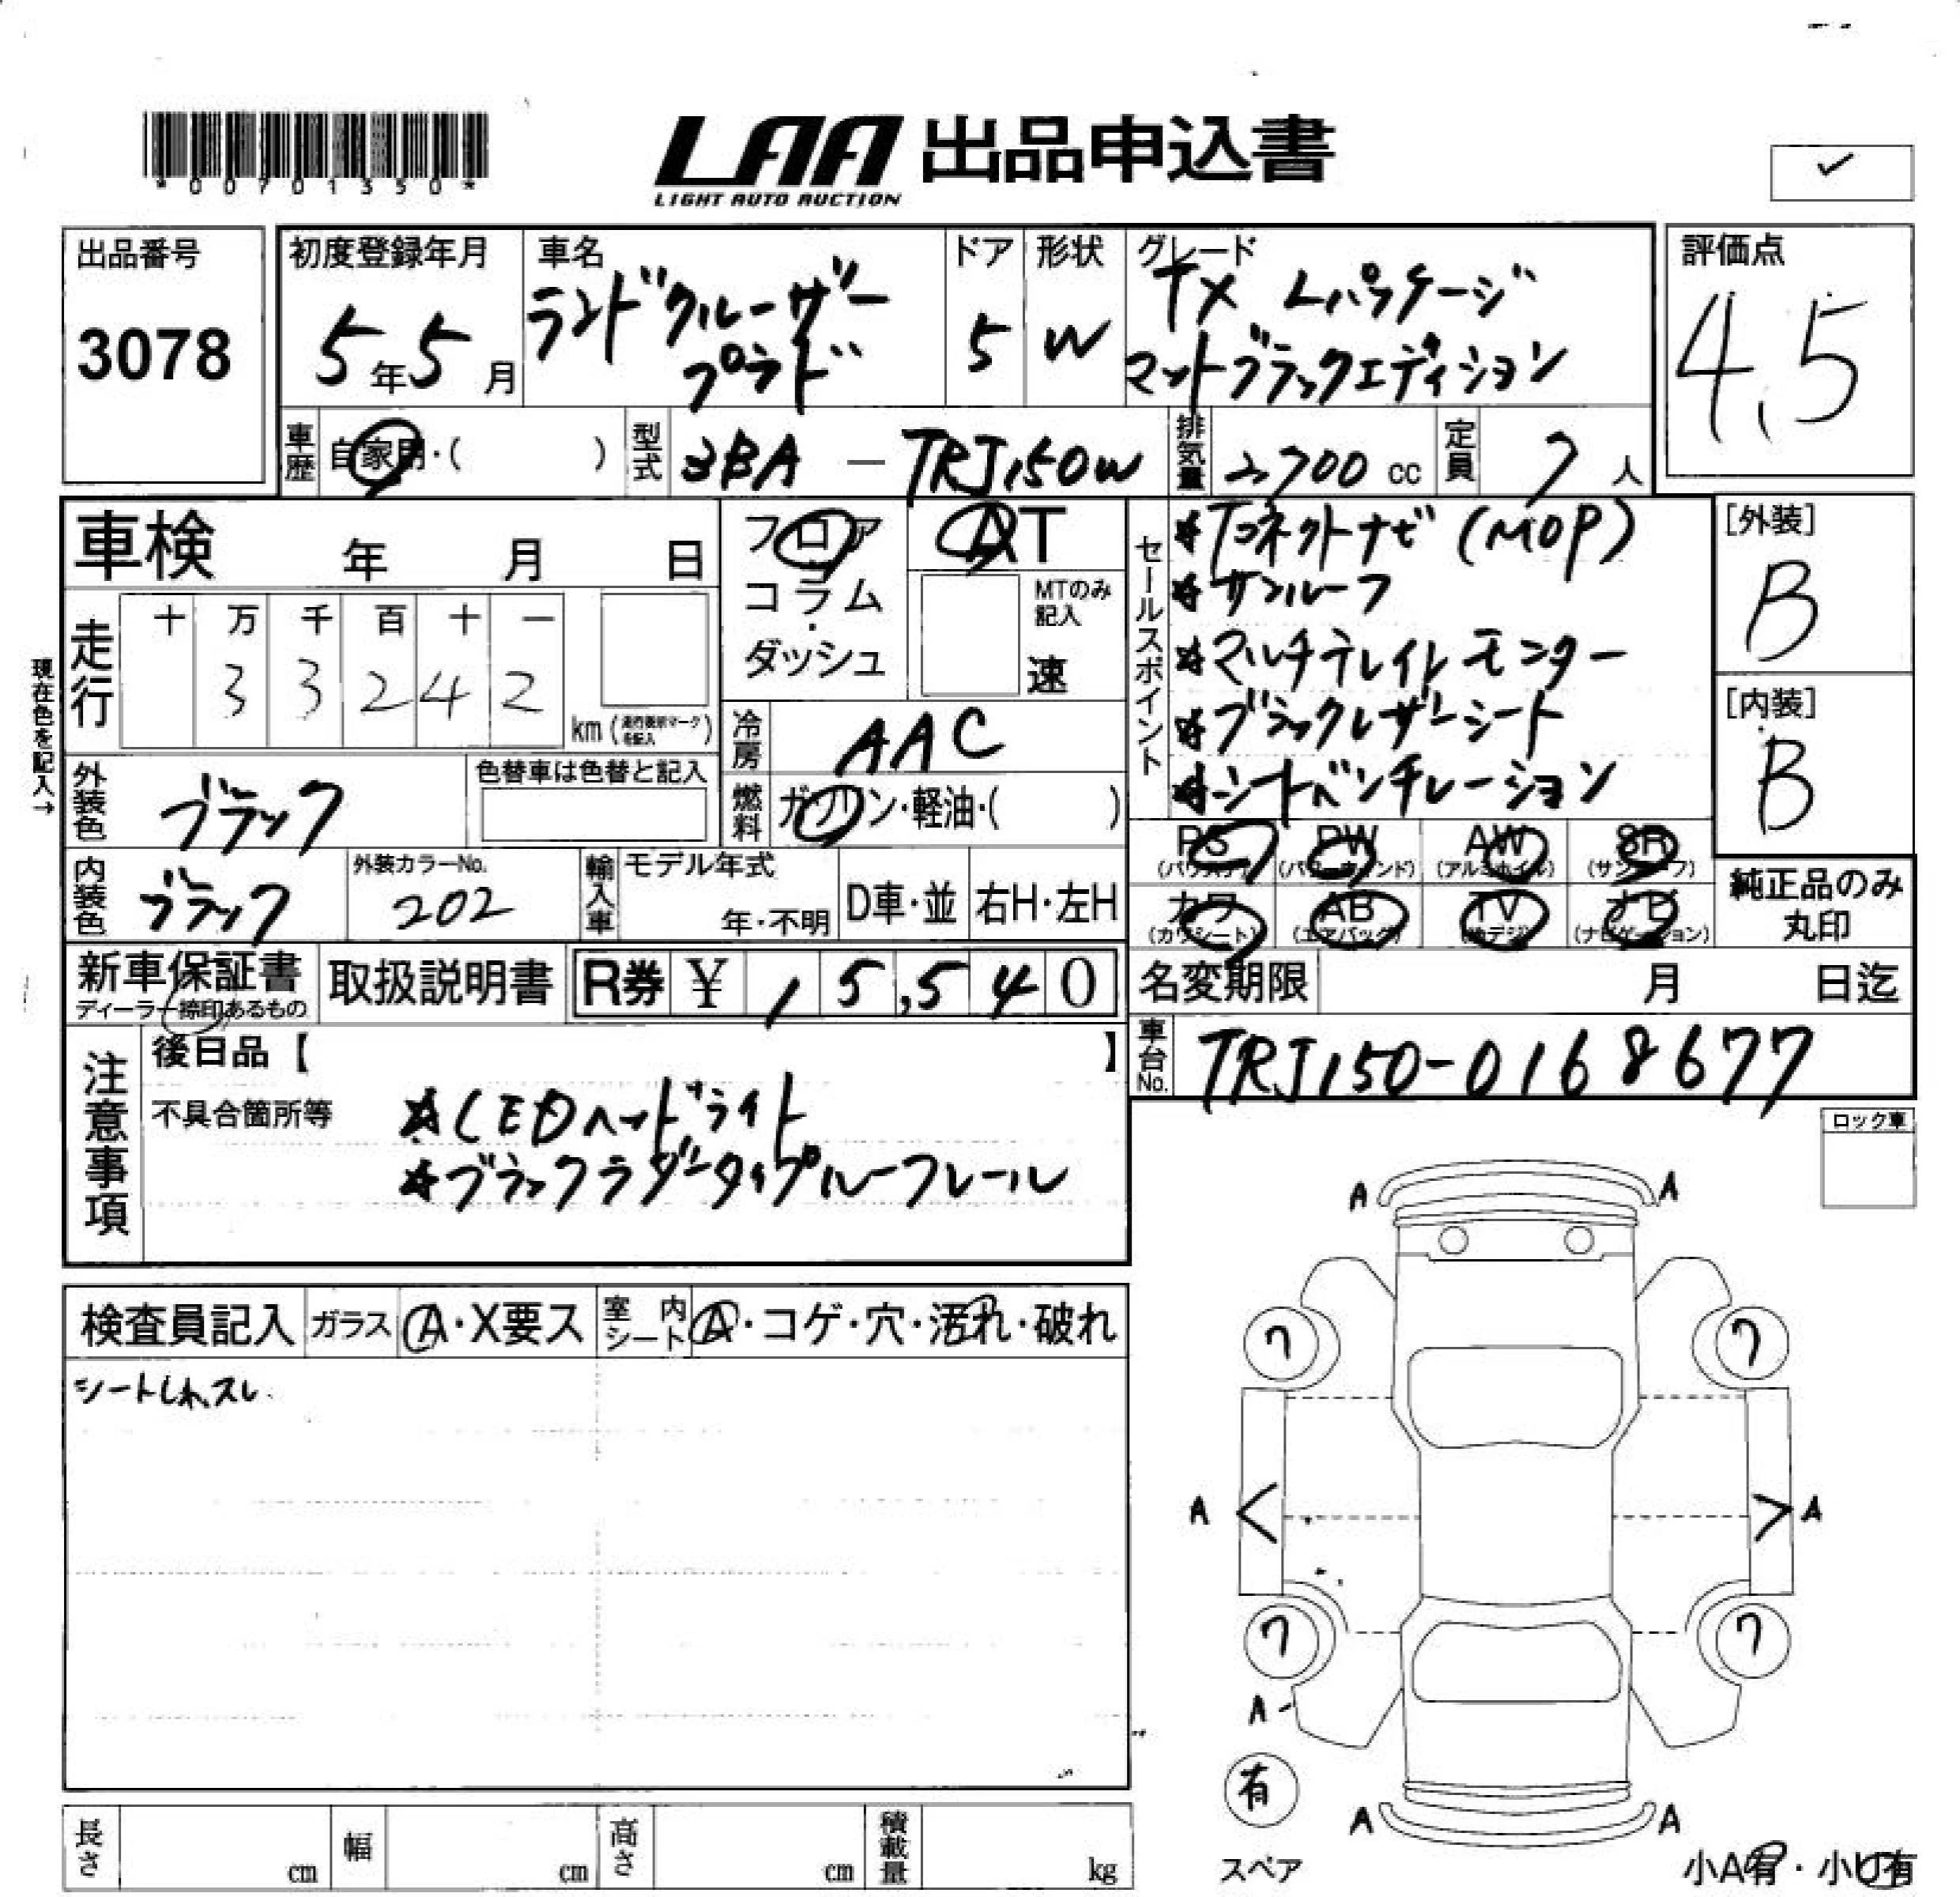 *00701350*
LAA 出品申込書
LIGHT AUTO AUCTION
出品番号
3078
初度登録年月
5年5月
車名
ランドクルーザー
プラド
ドア
5
形状
W
グレード
TX Lパッケージ
マットブラックエディション
評価点
4.5
車歴
自家用・( )
型式
3BA - TRJ150W
排気量
2,700 cc
定員
7人
車検 年 月 日
フロア
コラム
ダッシュ
AT
MTのみ記入
速
セールスポイント
*Tコネクトナビ (MOP)
*サンルーフ
*マルチテレインモニター
*ブラックレザーシート
*シートベンチレーション
[外装]
B
[内装]
B
現在色を記入→
走行
十 万 千 百 十 一
3 3 2 4 2
km
冷房
AAC
外装色
ブラック
色替車は色替と記入
燃料
ガソリン・軽油・( )
PS (パワステ)
PW (パワーウィンド)
AW (アルミホイル)
SR (サンルーフ)
内装色
ブラック
外装カラーNo.
202
輸入車
モデル年式
年・不明
D車・並
右H・左H
カワ (カワシート)
AB (エアバッグ)
TV (地デジ)
ナビ (ナビゲーション)
純正品のみ
丸印
新車保証書
ディーラー捺印あるもの
取扱説明書
R券 ¥15,540
名変期限 月 日迄
車台No.
TRJ150-0168677
注意事項
後日品【 】
不具合箇所等
*LEDヘッドライト
*ブラックラダータイプルーフレール
ロック車
検査員記入
ガラス
A・X要ス
室内シート
A・コゲ・穴・汚れ・破れ
シートしわ、スレ
A A
7 7
A A
7 7
A
有
スペア
A A
小A有・小U有
長さ cm
幅 cm
高さ cm
積載量 kg